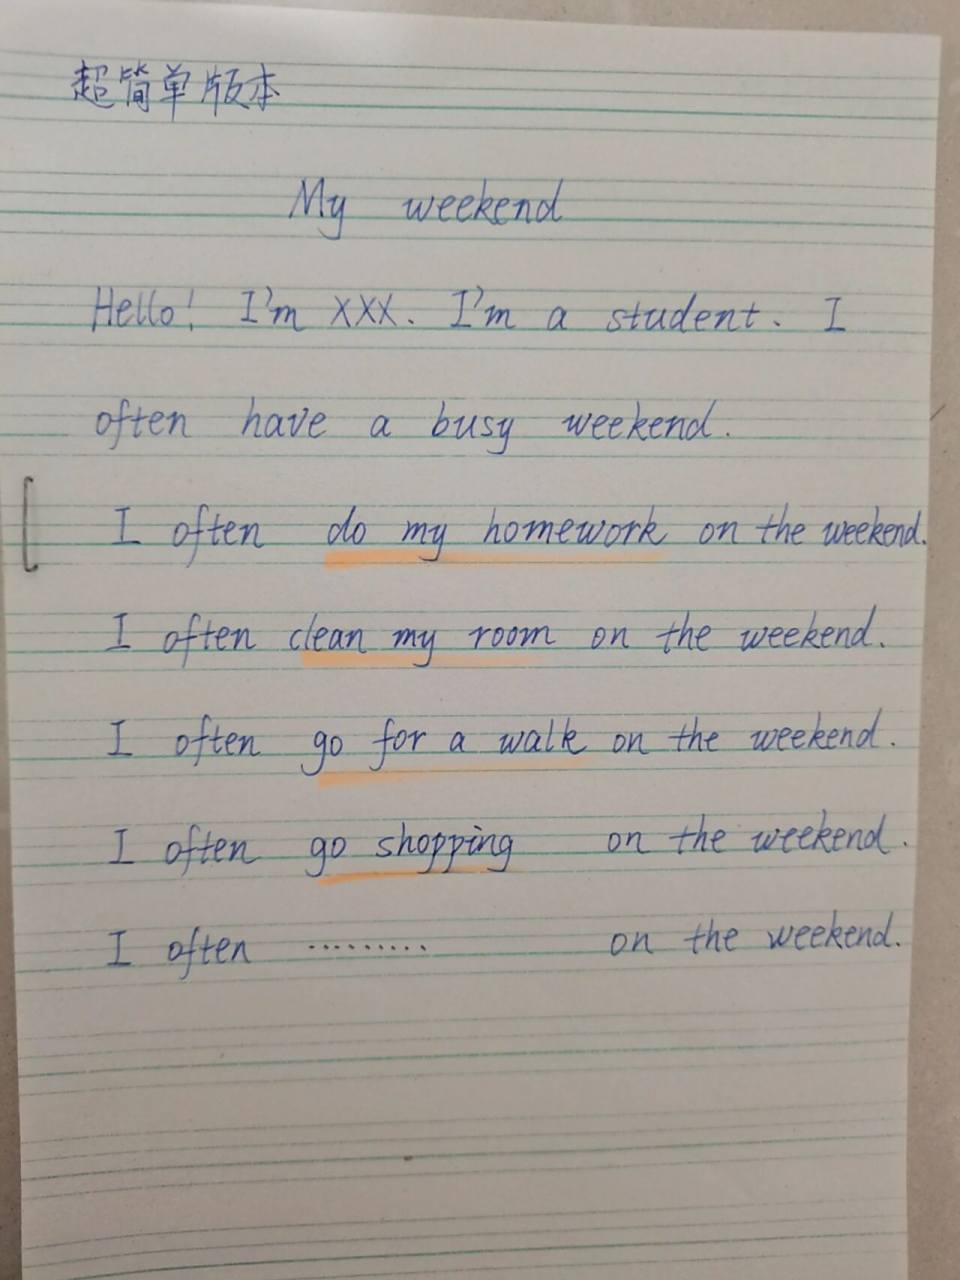 超简单版本
My weekend
Hello! I'm XXX. I'm a student. I
often have a busy weekend.
I often do my homework on the weekend.
I often clean my room on the weekend.
I often go for a walk on the weekend.
I often go shopping on the weekend.
I often ......... on the weekend.